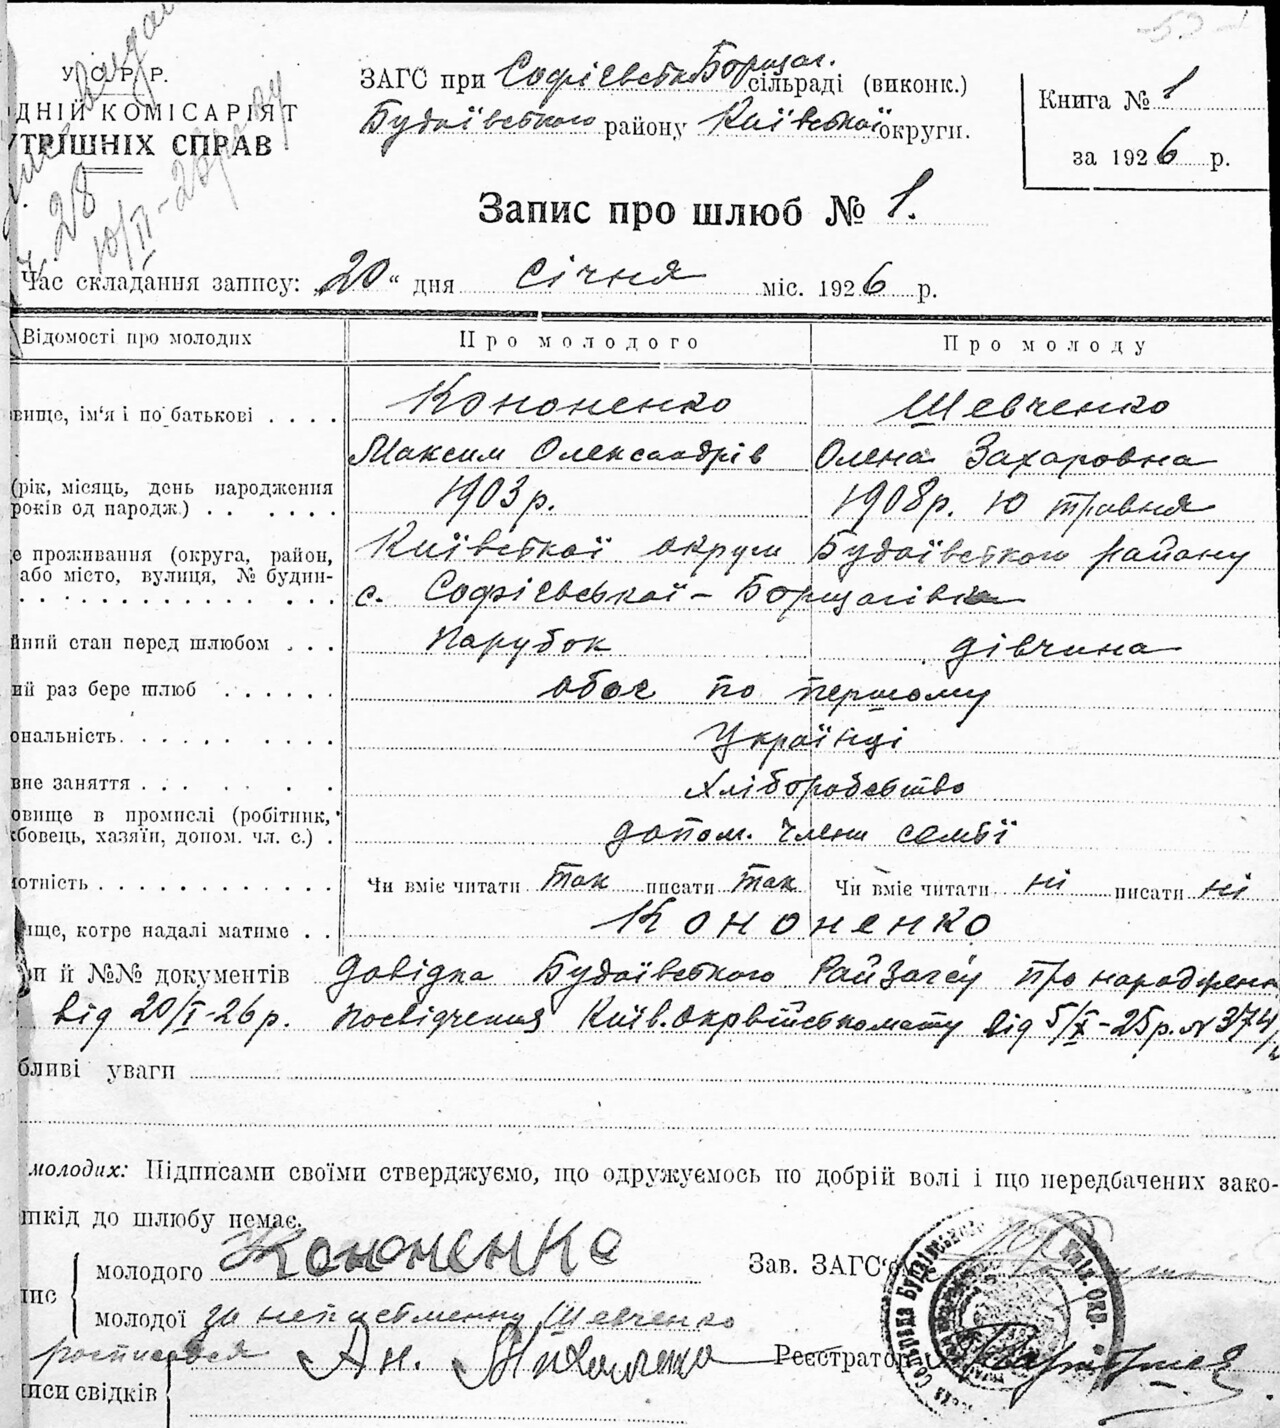 У. С. Р. Р.
ДНІЙ КОМІСАРІЯТ
УТРІШНІХ СПРАВ
28
10/II-26 року
ЗАГС при Софієвсткоборщаг. сільраді (виконк.)
Будаївсткого району Київсткої округи.
Книга № 1
за 1926 р.
Запис про шлюб № 1.
Час складання запису: „20“ дня Січня міс. 1926 р.
Відомості про молодих
Про молодого
Про молоду
вище, ім'я і по батькові . . . .
Кононенко
Шевченко
Максим Олександрів
Олена Захаровна
(рік, місяць, день народження
років од народж.) . . . . . .
1903р.
1908р. 10 травня
е проживання (округа, район,
або місто, вулиця, № будин-
Київсткої округи Будаївсткого району
с. Софієвської-Борщагівки
йний стан перед шлюбом . . .
Парубок
дівчина
ий раз бере шлюб . . . . . .
обоє по першому
ональність. . . . . . . . . .
Українці
вне заняття . . . . . . .
Хліборобство
овище в промислі (робітник,
бовець, хазяїн, допом. чл. с.) .
допом. члени сембї
отність . . . . . . . . . . . .
Чи вміє читати так писати так
Чи вміє читати ні писати ні
ище, котре надалі матиме . .
Кононенко
пи й №№ документів довідка Будаївсткого РайЗагсу про народжен
від 20/I-26р. посвідчення Київ.окрвійсткомату від 5/X-25р. № 374/
бливі уваги
молодих: Підписами своїми стверджуємо, що одружуємось по добрій волі і що передбачених зако-
шкід до шлюбу немає.
пис
молодого Кононенко
молодої за неписьменну Шевченко
росписався Ан. Михаленко
писи свідків
Зав. ЗАГС'у
Реєстратор